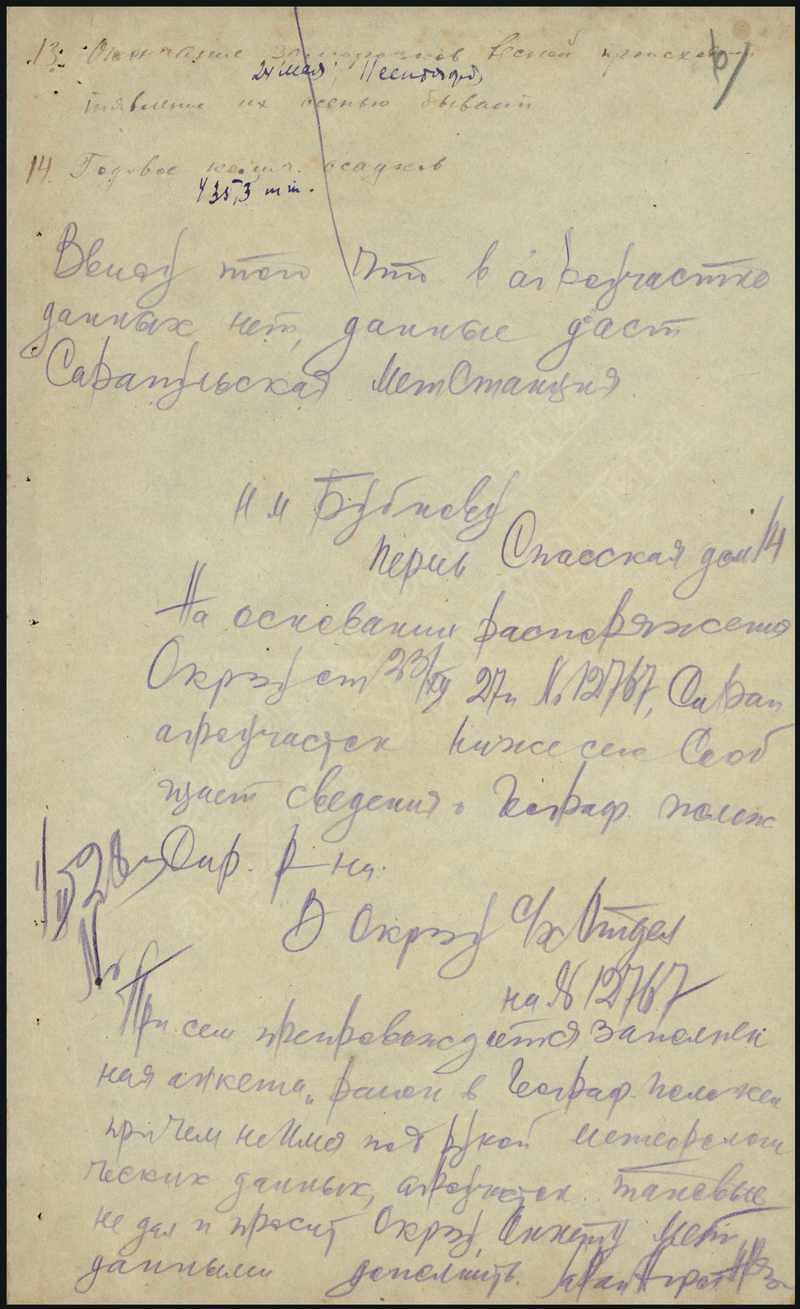 13. Окончание заморозков весной происходит
24 мая, 11 сентября
появление их осенью бывает
14. Годовое колич. осадков
435,3 mm.
Ввиду того что в агроучастке
данных нет, данные даст
Сарапульская МетСтанция.
Бубнову
Пермь Спасская дом 14
На основании распоряжения
Окрзу от 23/XII 27 г. № 12767, Сарап
агроучасток ниже сего сооб
щает сведения о Географ. полож
Сар. р-на.
В Окрзу с/х Отдел
на № 12767
При сем препровождается заполнен
ная анкета „район в Географ. положен
причем не имея под рукой метеорологи
ческих данных, агроучасток таковые
не дал и просит Окрзу, Анкету Мет.
данными дополнить.